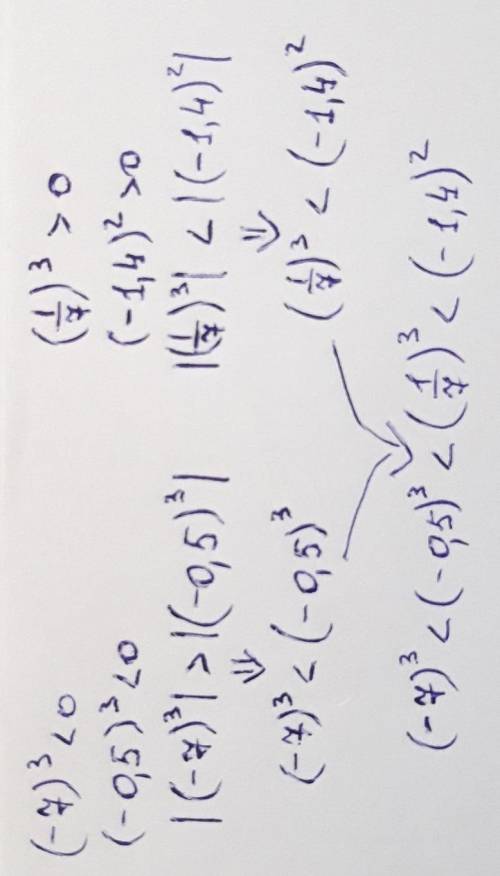 (-7)³ < 0
(-0,5)³ < 0
|(-7)³| > |(-0,5)³|
⇓
(-7)³ < (-0,5)³
(1/7)³ > 0
(-1,4)² > 0
|(1/7)³| < |(-1,4)²|
⇓
(1/7)³ < (-1,4)²
(-7)³ < (-0,5)³ < (1/7)³ < (-1,4)²